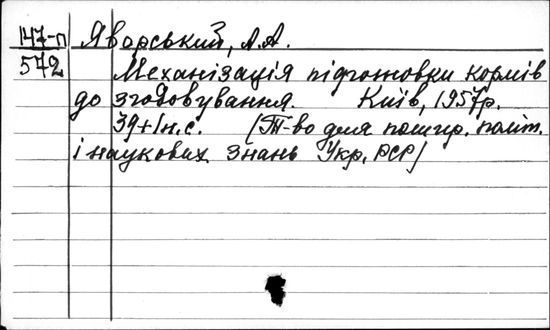 147-п Яворський, А.А.
572 Механізація підготовки кормів
до згодовування. Київ, 1957р.
39+1н.с. (Т-во для пошир. політ.
і наукових знань Укр. РСР)